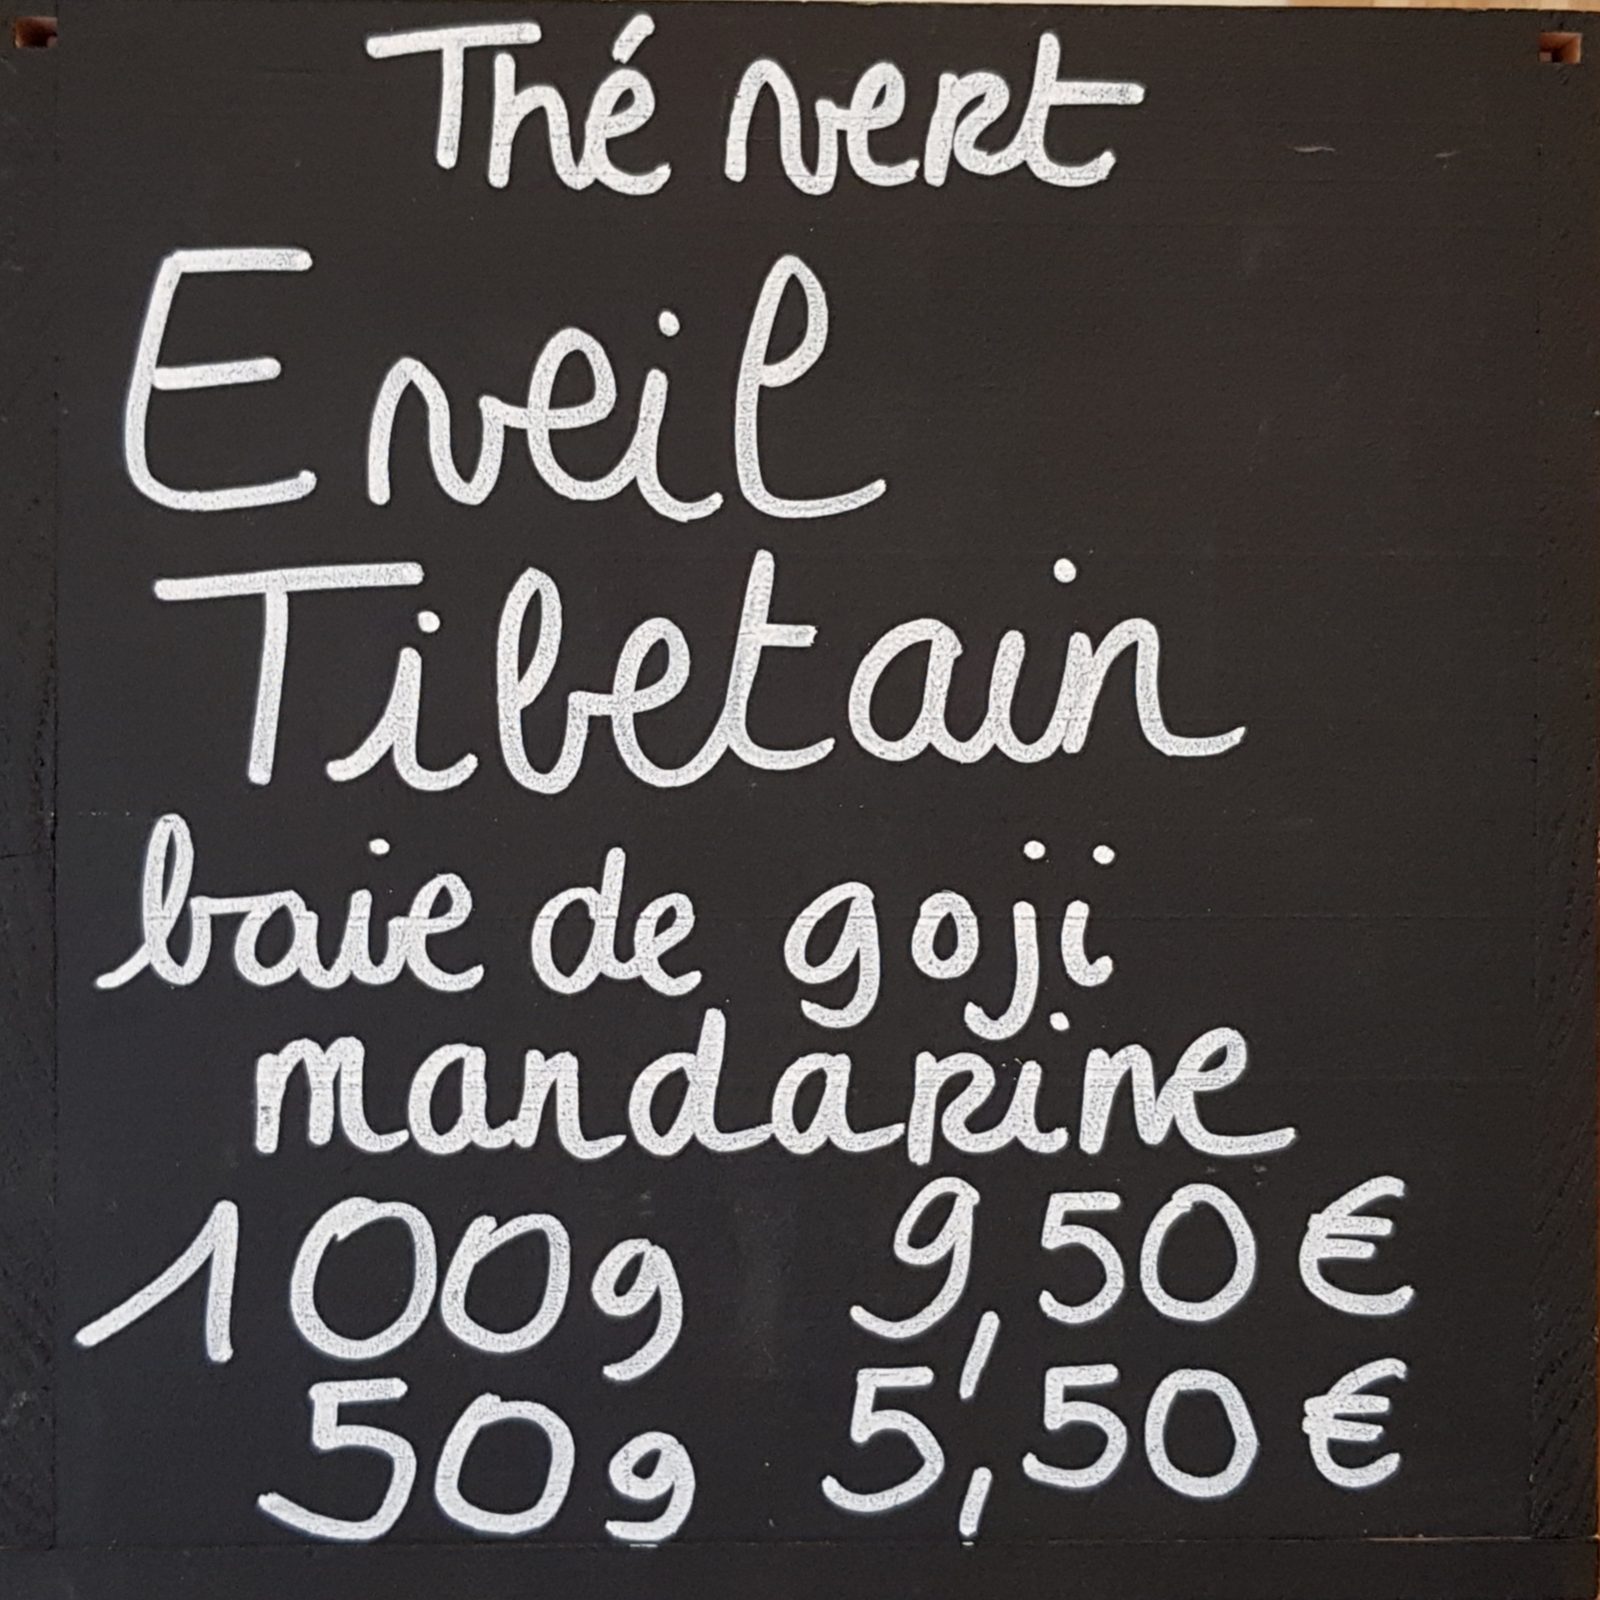 Thé vert
Eveil
Tibetain
baie de goji
mandarine
100g 9,50 €
50g 5,50 €